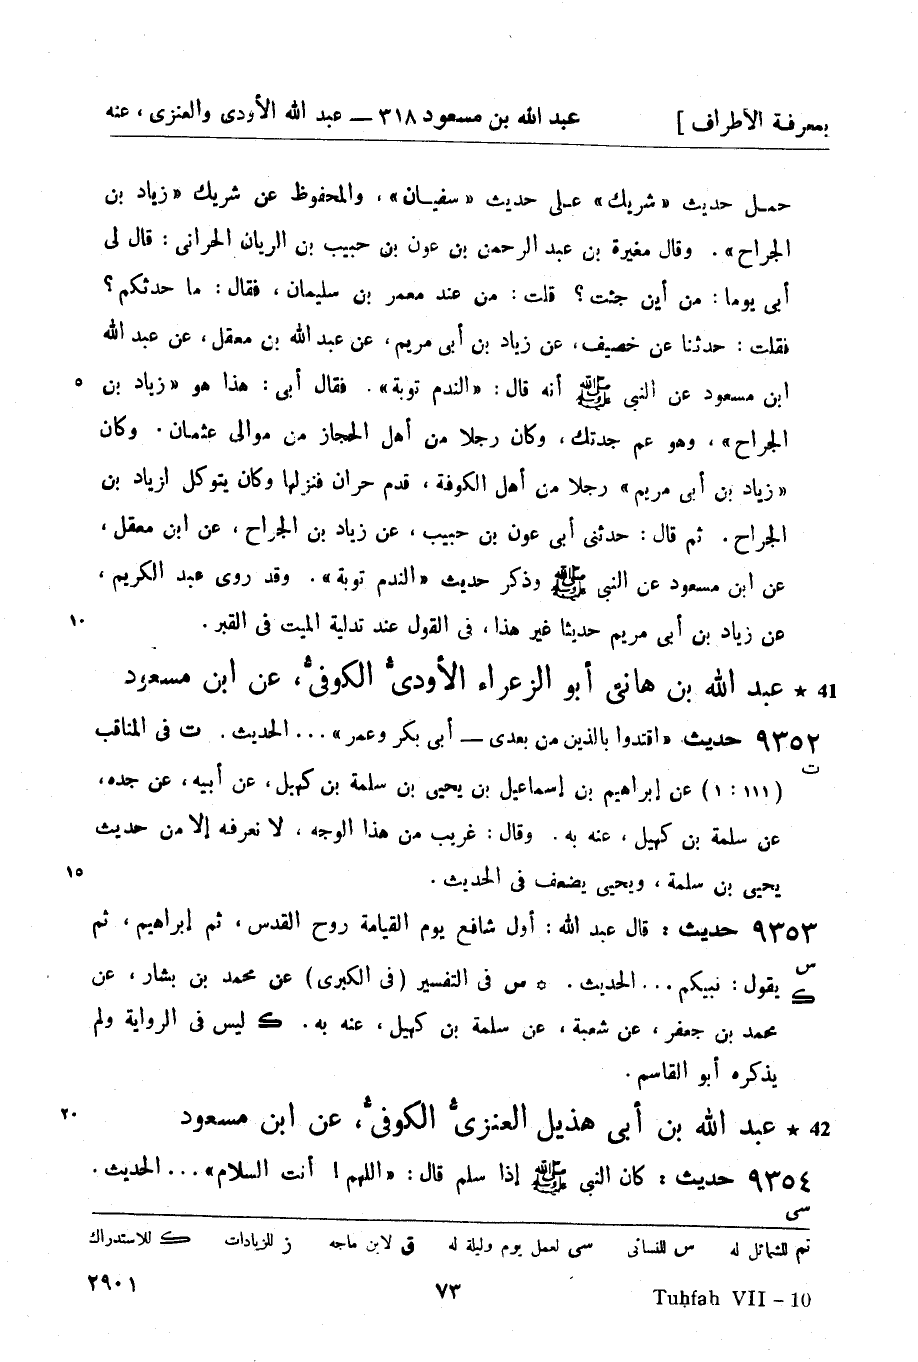 بمعرفة الأطراف ] عبد الله بن مسعود ٣١٨ — عبد الله الأودى والعنزى ، عنه
حمـل حديث «شريك» عـلى حديث «سفيـان» ، والمحفوظ عن شريك «زياد بن
الجراح» . وقال مغيرة بن عبد الرحمن بن عون بن حبيب بن الريان الحرانى : قال لى
أبى يوما : من أين جئت ؟ قلت : من عند معمر بن سليمان ، فقال : ما حدثكم ؟
فقلت : حدثنا عن خصيف ، عن زياد بن أبى مريم ، عن عبد الله بن معقل ، عن عبد الله
ابن مسعود عن النبى ﷺ أنه قال : «الندم توبة» . فقال أبى : هذا هو «زياد بن ٥
الجراح» ، وهو عم جدتك ، وكان رجلا من أهل الحجاز من موالى عثمان . وكان
«زياد بن أبى مريم» رجلا من أهل الكوفة ، قدم حران فنزلها وكان يتوكل لزياد بن
الجراح . ثم قال : حدثنى أبى عون بن حبيب ، عن زياد بن الجراح ، عن ابن معقل ،
عن ابن مسعود عن النبى ﷺ وذكر حديث «الندم توبة» . وقد روى عبد الكريم ،
عن زياد بن أبى مريم حديثا غير هذا ، فى القول عند تدلية الميت فى القبر . ١٠
41 * عبد الله بن هانئ أبو الزعراء الأودىُّ الكوفىُّ ، عن ابن مسعود
٩٣٥٢ حديث «اقتدوا بالذين من بعدى — أبى بكر وعمر» ... الحديث . ت فى المناقب
ت
(١١١ : ١) عن إبراهيم بن إسماعيل بن يحيى بن سلمة بن كهيل ، عن أبيه ، عن جده ،
عن سلمة بن كهيل ، عنه به . وقال : غريب من هذا الوجه ، لا نعرفه إلا من حديث
يحيى بن سلمة ، ويحيى يضعف فى الحديث . ١٥
٩٣٥٣ حديث : قال عبد الله : أول شافع يوم القيامة روح القدس ، ثم إبراهيم ، ثم
س
ك يقول : نبيكم ... الحديث . * س فى التفسير (فى الكبرى) عن محمد بن بشار ، عن
محمد بن جعفر ، عن شعبة ، عن سلمة بن كهيل ، عنه به . ك ليس فى الرواية ولم
يذكره أبو القاسم .
42 * عبد الله بن أبى هذيل العنزىُّ الكوفىُّ ، عن ابن مسعود ٢٠
٩٣٥٤ حديث : كان النبى ﷺ إذا سلم قال : «اللهم ! أنت السلام» ... الحديث .
سى
تم للشمائل له س للنسائى سى لعمل يوم وليلة له ق لابن ماجه ز للزيادات ك للاستدراك
Tuḥfah VII – 10 ٧٣ ٢٩٠١